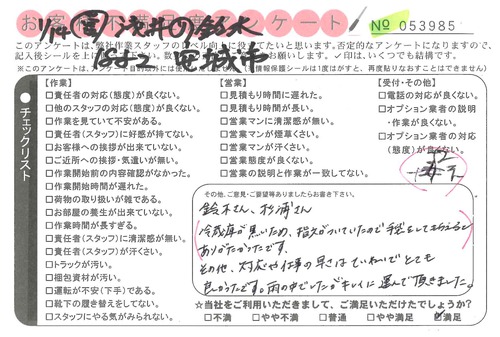 お客様不満足度アンケート
№ 053985
このアンケートは、弊社作業スタッフのレベル向上に役立てたいと思います。否定的なアンケートになりますので、
※このアンケートは、
✓印は、いくつでも結構です。
チェックリスト
【作業】
□責任者の対応(態度)が良くない。
□他のスタッフの対応(態度)が良くない。
□作業を見ていて不安がある。
□責任者(スタッフ)に好感が持てない。
□お客様への挨拶が出来ていない。
□ご近所への挨拶・気遣いが無い。
□作業開始前の内容確認がなかった。
□作業開始時間が遅れた。
□荷物の取り扱いが雑である。
□お部屋の養生が出来ていない。
□作業時間が長すぎる。
□責任者(スタッフ)に清潔感が無い。
□責任者(スタッフ)が汗くさい。
□トラックが汚い。
□梱包資材が汚い。
□運転が不安(下手)である。
□靴下の履き替えをしてない。
□スタッフにやる気がみられない。
【営業】
□見積もり時間に遅れた。
□見積もり時間が長い。
□営業マンに清潔感が無い。
□営業マンが煙草くさい。
□営業マンが汗くさい。
□営業態度が良くない。
□営業の説明と作業が一致してない。
【受付・その他】
□電話の対応が良くない。
□オプション業者の説明
・作業が良くない。
□オプション業者の対応
(態度)が良くない。
その他、ご意見・ご要望等ありましたらお書き下さい。
鈴木さん、松浦さん
冷蔵庫が黒いため、指紋がついていたので手袋をしてもらえると
ありがたかったです。
その他、対応や仕事の早さはていねいでとても
良かったです。雨の中でしたがキレイに運んで頂きました。
☆当社をご利用いただきまして、ご満足いただけたでしょうか?
□不満 □やや不満 □普通 □やや満足 ☑満足